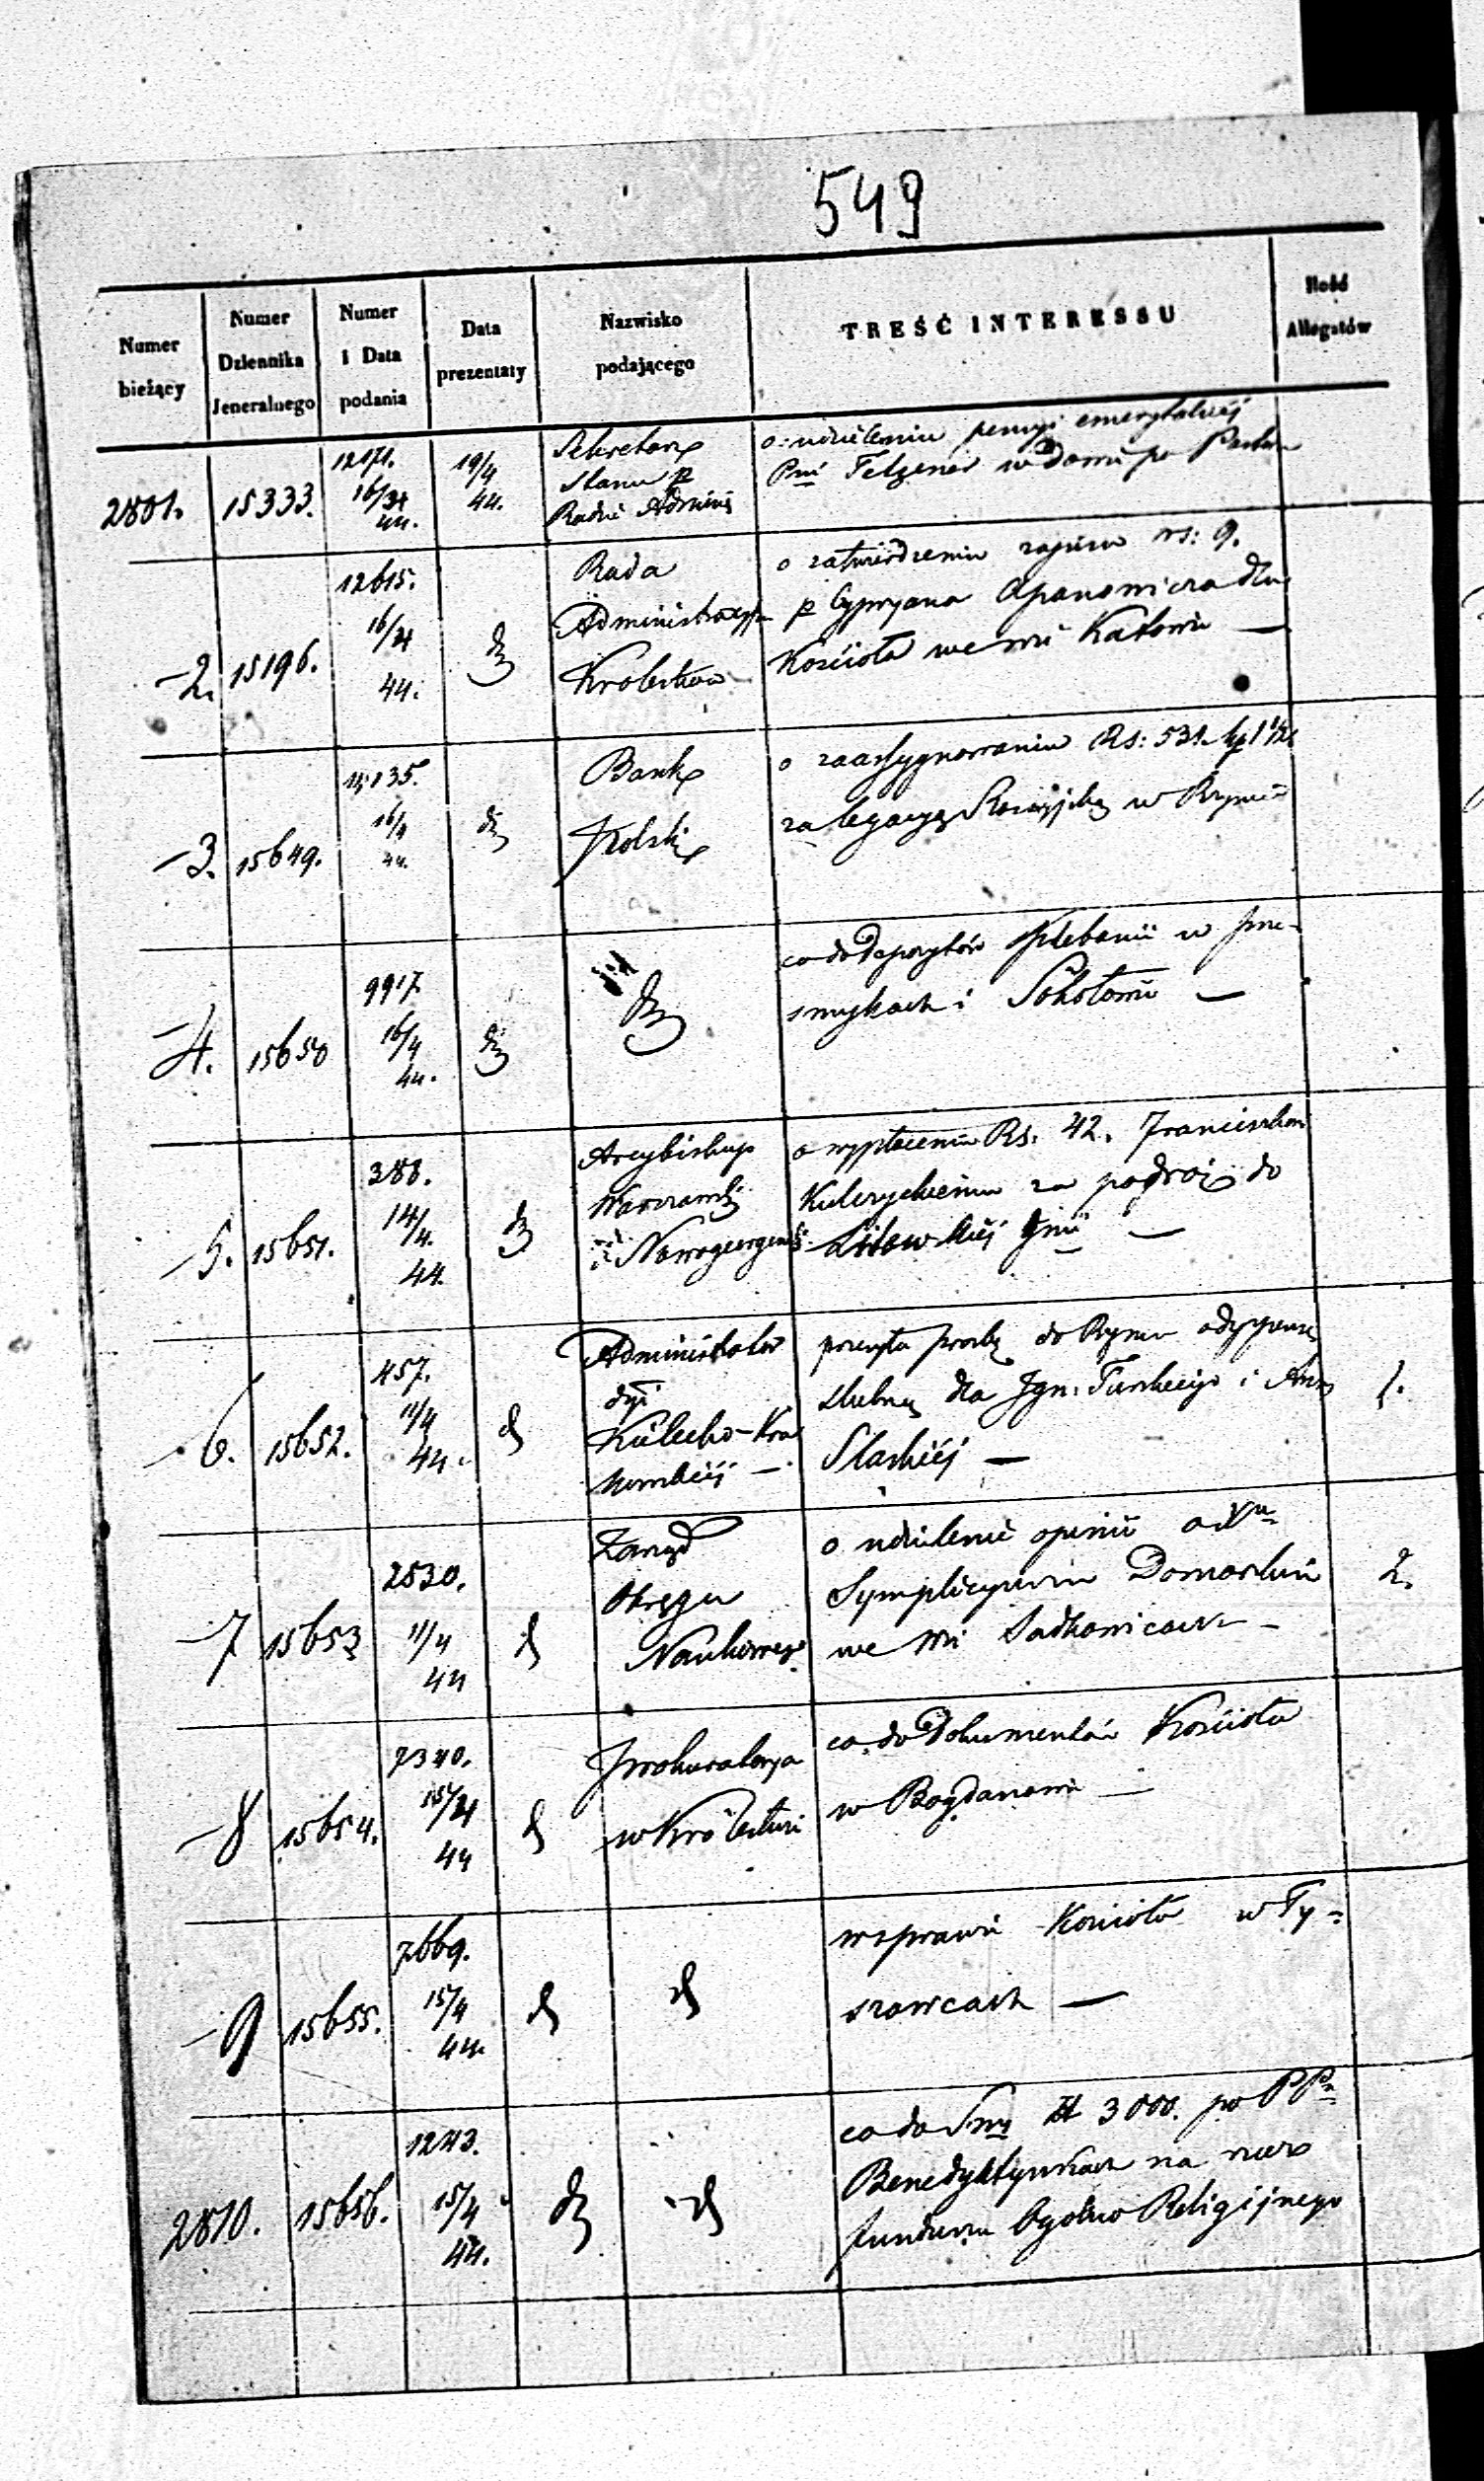 549
Numer bieżący
Numer Dziennika Jeneralnego
Numer i Data podania
Data prezentaty
Nazwisko podającego
TREŚĆ INTERESSU
Ilość Allegatów
2801. 15333. 16/4 44. 19/4 44. Sekretarz Stanu p Radzie Adminis
o udzieleniu pensyi emerytalnéj
Pni Felzener wdowie po
2. 15196. 12615. 16/4 44. Rada Administracyjn Krolestwa
o zatwierdzeniu zapisu rs: 9.
p Cypryana Apanowicza dla
Kościoła we wsi
3. 15649. 16/4 44. Bank Polski
o zaassygnowaniu Rs: 531. kp 1 1/2
za legacyę Rossyjską w Rzymie
4. 15650 9917. 16/4 44.
co do Depozytów Plebanii w Prze-
smykach i Sokołowie —
5. 15651. 388. 14/4. 44. Arcybiskup Warszawski i Nowogeorgewski
o wypłacenie Rs. 42. Franciszkowi
za podróż do
Litewskiéj Gnii —
6. 15652. 457. 11/4 44. Administrator dyi Kielecko-Krakowskiéj —
przesyła prośbę do Rzymu o dyspensę
ślubną dla Ign: Turskiego i
Slaskiéj — 1.
7 15653 2530. 11/4 44 Zarząd Okręgu Naukowego
o udzielenie opinii o Xu
Symplicyuszu Domańskim
we wsi Sadkowicach — 2.
8 15654. 7340. 15/4 44 Prokuratorya w Królestwie
co do Dokumentów Kościoła
w Bogdanowie —
9 15655. 7669. 15/4 44.
w sprawie Kościoła w Ty-
szowcach —
2810. 15656. 1243. 15/4 44.
co do Smy Zł 3000. po PPn
Benedyktynkach na rzecz
funduszu Ogólno Religijnego